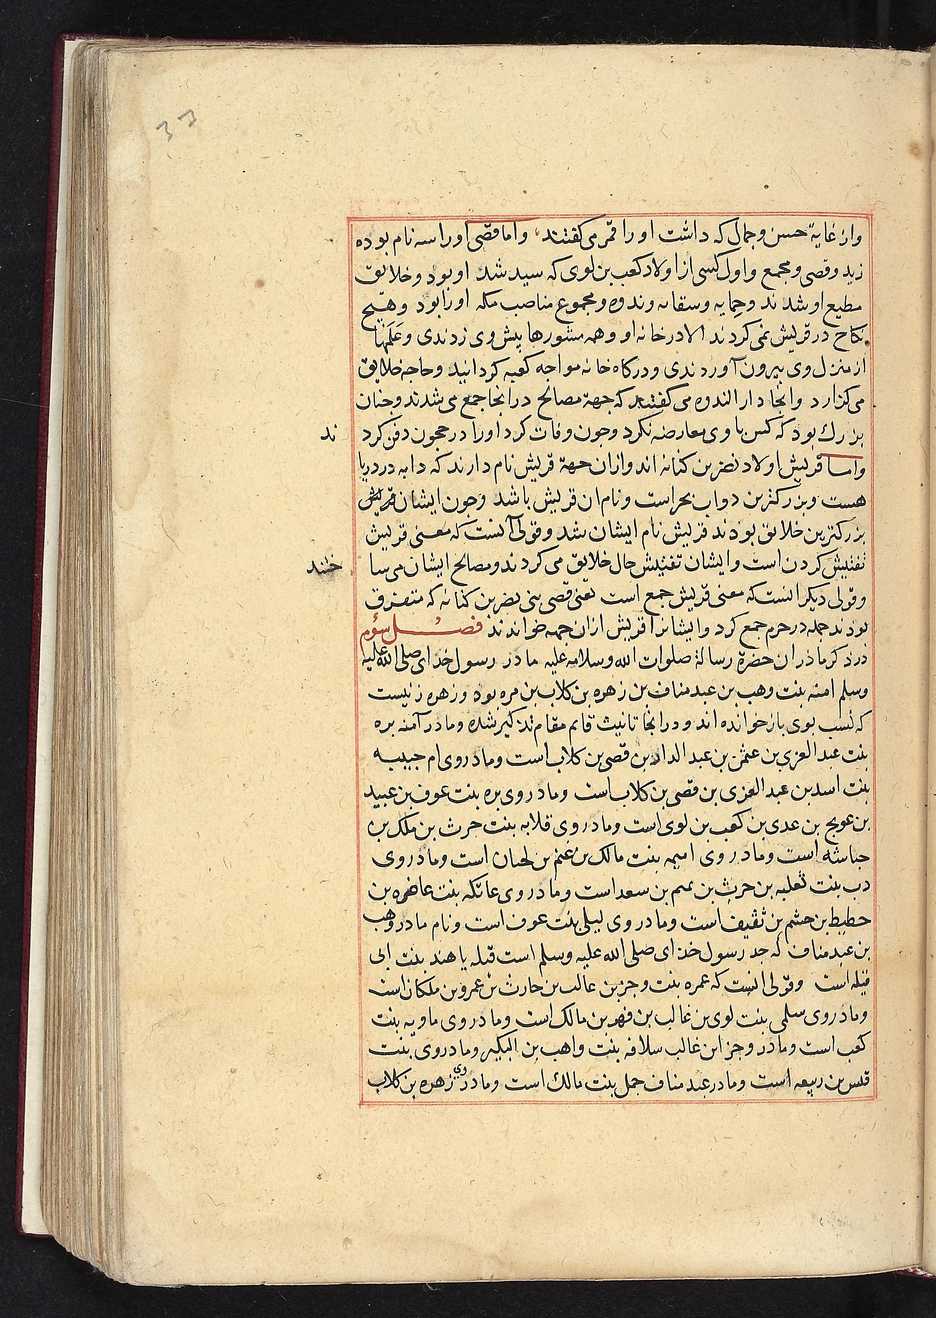 واز غایة حسن وجمال که داشت اورا قمر می کفتند واما قصّی اورا سه نام بوده
زید وقصی ومجمع واول کسی از اولاد کعب بن لوی که سید شد او بود وخلایق
مطیع او شدند وحمایه وسقایه وندوه ومجموع مناصب مکه اورا بود وهیچ
نکاح در قریش نمی کردند الا در خانه او وهمه مشورها پیش وی زدندی وعَلَمها
از منزل وی بیرون آوردندی ودرکاه خانه مواجه کعبه کردانید وحاجه خلایق
می کزارد وانجا دار الندوه می کفتند که جهة مصالح در انجا جمع می شدند وچنان
بزرك بود که کس با وی معارضه نکرد وچون وفات کرد اورا در حجون دفن کرد
ند
واما قریش اولاد نضر بن کنانه اند وازان جهة قریش نام دارند که دابه در دریا
هست وبزرکترین دواب بحر است ونام ان قریش باشد وچون ایشان قریش
بزرکترین خلایق بودند قریش نام ایشان شد وقولی آنست که معنی قریش
تفتیش کردن است وایشان تفتیش حال خلایق می کردند ومصالح ایشان می سا
ختند
وقولی دیکر انست که معنی قریش جمع است یعنی قصی بنی نضر بن کنانه که متفرق
بودند جمله در حرم جمع کرد وایشانرا قریش ازان جهه خواندند فصل سؤم
در ذکر مادران حضرة رسالة صلوات الله وسلامه علیه مادر رسول خدای صلی الله علیه
وسلم امنه بنت وهب بن عبد مناف بن زهره بن کلاب بن مره بود وزهره زنیست
که نسب بوی باز خوانده اند ودر انجا تانیث قائم مقام تذکیر شده ومادر آمنه بره
بنت عبد العزی بن عثمن بن عبد الدار بن قصی بن کلاب است ومادر وی ام حبیبه
بنت اسد بن عبد العزی بن قصی بن کلاب است ومادر وی بره بنت عوف بن عبید
بن عویج بن عدی بن کعب بن لوی است ومادر وی قلابه بنت حرث بن ملك بن
حباشه است ومادر وی امیمه بنت مالك بن غنم بن لحیان است ومادر وی
دب بنت ثعلبه بن حرث بن تمیم بن سعد است ومادر وی عاتکه بنت عاضره بن
حطیط بن جشم بن ثقیف است ومادر وی لیلی بنت عوف است ونام مادر وهب
بن عبد مناف که جد رسول خدای صلی الله علیه وسلم است قیله یا هند بنت ابی
قیله است وقولی انست که عمره بنت وجز بن غالب بن حارث بن عمرو بن ملکان است
ومادر وی سلمی بنت لوی بن غالب بن فهر بن مالك است ومادر وی ماویه بنت
کعب است ومادر وجز ابن غالب سلافه بنت واهب بن البکیر ومادر وی بنت
قیس بن ربیعه است ومادر عبد مناف جمل بنت مالك است ومادر وی زهره بن کلاب